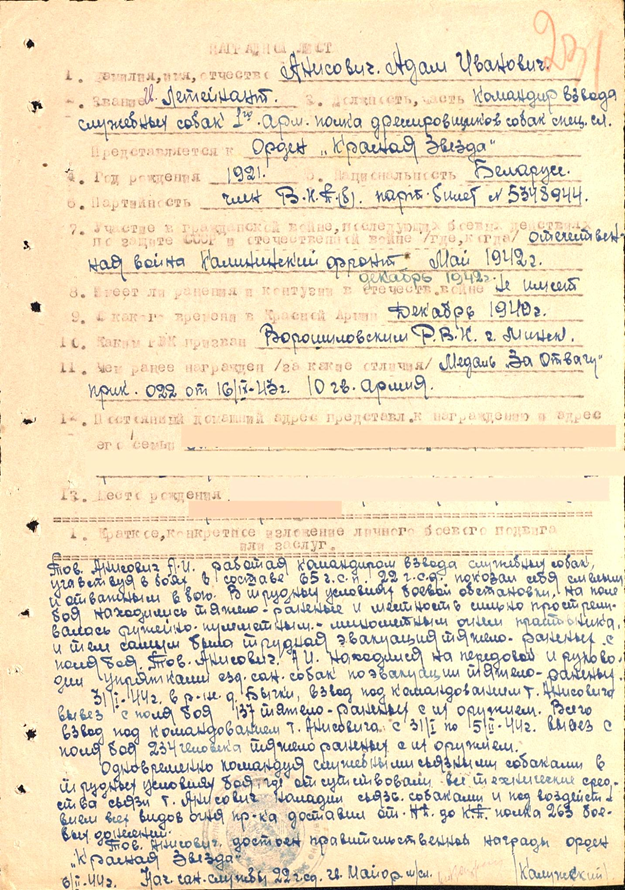 НАГРАДНОЙ ЛИСТ
1. Фамилия, имя, отчество Анисович Адам Иванович.
2. Звание Лейтенант. 3. Должность, часть Командир взвода
служебных собак 1го арм. полка дрессировщиков собак спец. сл.
Представляется к Орден „Красная Звезда"
4. Год рождения 1921. 5. Национальность Беларусс.
6. Партийность член В.К.П.(б). парт. билет № 5348944.
7. Участие в гражданской войне, последующих боевых действиях
по защите СССР и отечественной войне /где, когда/ отечествен-
ная война Калининский фронт Май 1942 г.
декабрь 1942 г.
8. Имеет ли ранения и контузии в отечеств. войне не имеет
9. С какого времени в Красной Армии Декабрь 1940 г.
10. Каким РВК призван Ворошиловским Р.В.К. г. Минск.
11. Чем ранее награжден /за какие отличия/ Медаль „За Отвагу"
прик. 022 от 16/II-43г. 10 гв. армия.
12. Постоянный домашний адрес представл. к награждению и адрес
его семьи
13. Место рождения
1. Краткое, конкретное изложение личного боевого подвига
или заслуг.
Тов. Анисович А.И. работая командиром взвода служебных собак,
участвуя в боях в составе 65 г.с.п. 22 г.с.д. показал себя смелым
и отважным в бою. В трудных условиях боевой обстановки, на поле
боя находились тяжело-раненые и местность сильно простреи-
валась ружейно-пулеметным-минометным огнем противника,
и тем самым была трудная эвакуация тяжело-раненых с
поля боя. Тов. Анисович А.И. находился на передовой и руково-
дил упряжками езд. сан. собак по эвакуации тяжело-раненых.
31/I-44г. в р-не д. Бычки, взвод под командованием т. Анисовича
вывез с поля боя 137 тяжело-раненых с их оружием. Всего
взвод под командованием т. Анисовича с 31/I по 5/II-44г. вывез с
поля боя 234 человека тяжело раненых с их оружием.
Одновременно командуя служебными связными собаками в
трудных условиях боя, где отсутствовали все технические сред-
ства связи т. Анисович наладил связь собаками и под воздейст-
вием всех видов огня пр-ка доставил от Н.П. до К.П. полка 263 бое-
вых донесений.
Тов. Анисович достоен правительственной награды орден
„Красная Звезда"
6/II-44г. Нач. сан. службы 22 г.с.д. гв. Майор м/сл. /Калужский/